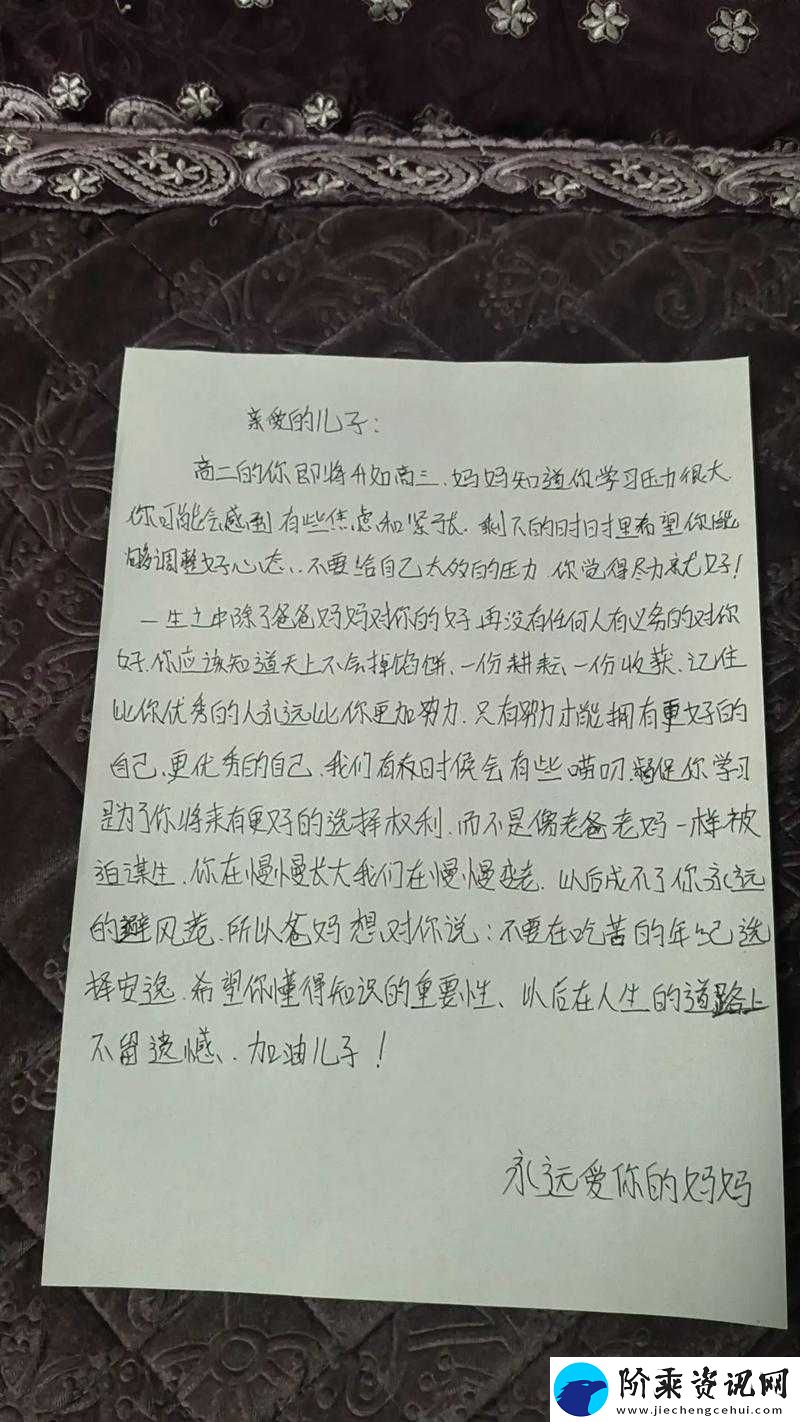 亲爱的儿子:
高二的你即将升如高三、妈妈知道你学习压力很大
你可能会感到有些焦虑和紧张、剩下的时才里希望你能
够调整好心态、不要给自己太多的压力、你觉得尽力就好!
一生之中除了爸爸妈妈对你的好、再没有任何人有义务的对你
好、你应该知道天上不会掉馅饼、一份耕耘、一份收获、记住
比你优秀的人永远比你更加努力、只有努力才能拥有更好的
自己、更优秀的自己、我们有时候会有些唠叨、督促你学习
是为了你将来有更好的选择权利、而不是像老爸老妈一样被
迫谋生、你在慢慢长大我们在慢慢变老、以后成不了你永远
的避风港、所以爸妈想对你说:不要在吃苦的年纪选
择安逸、希望你懂得知识的重要性、以后在人生的道路上
不留遗憾、加油儿子!
永远爱你的妈妈
阶乘资讯网
www.jiechengcehui.com